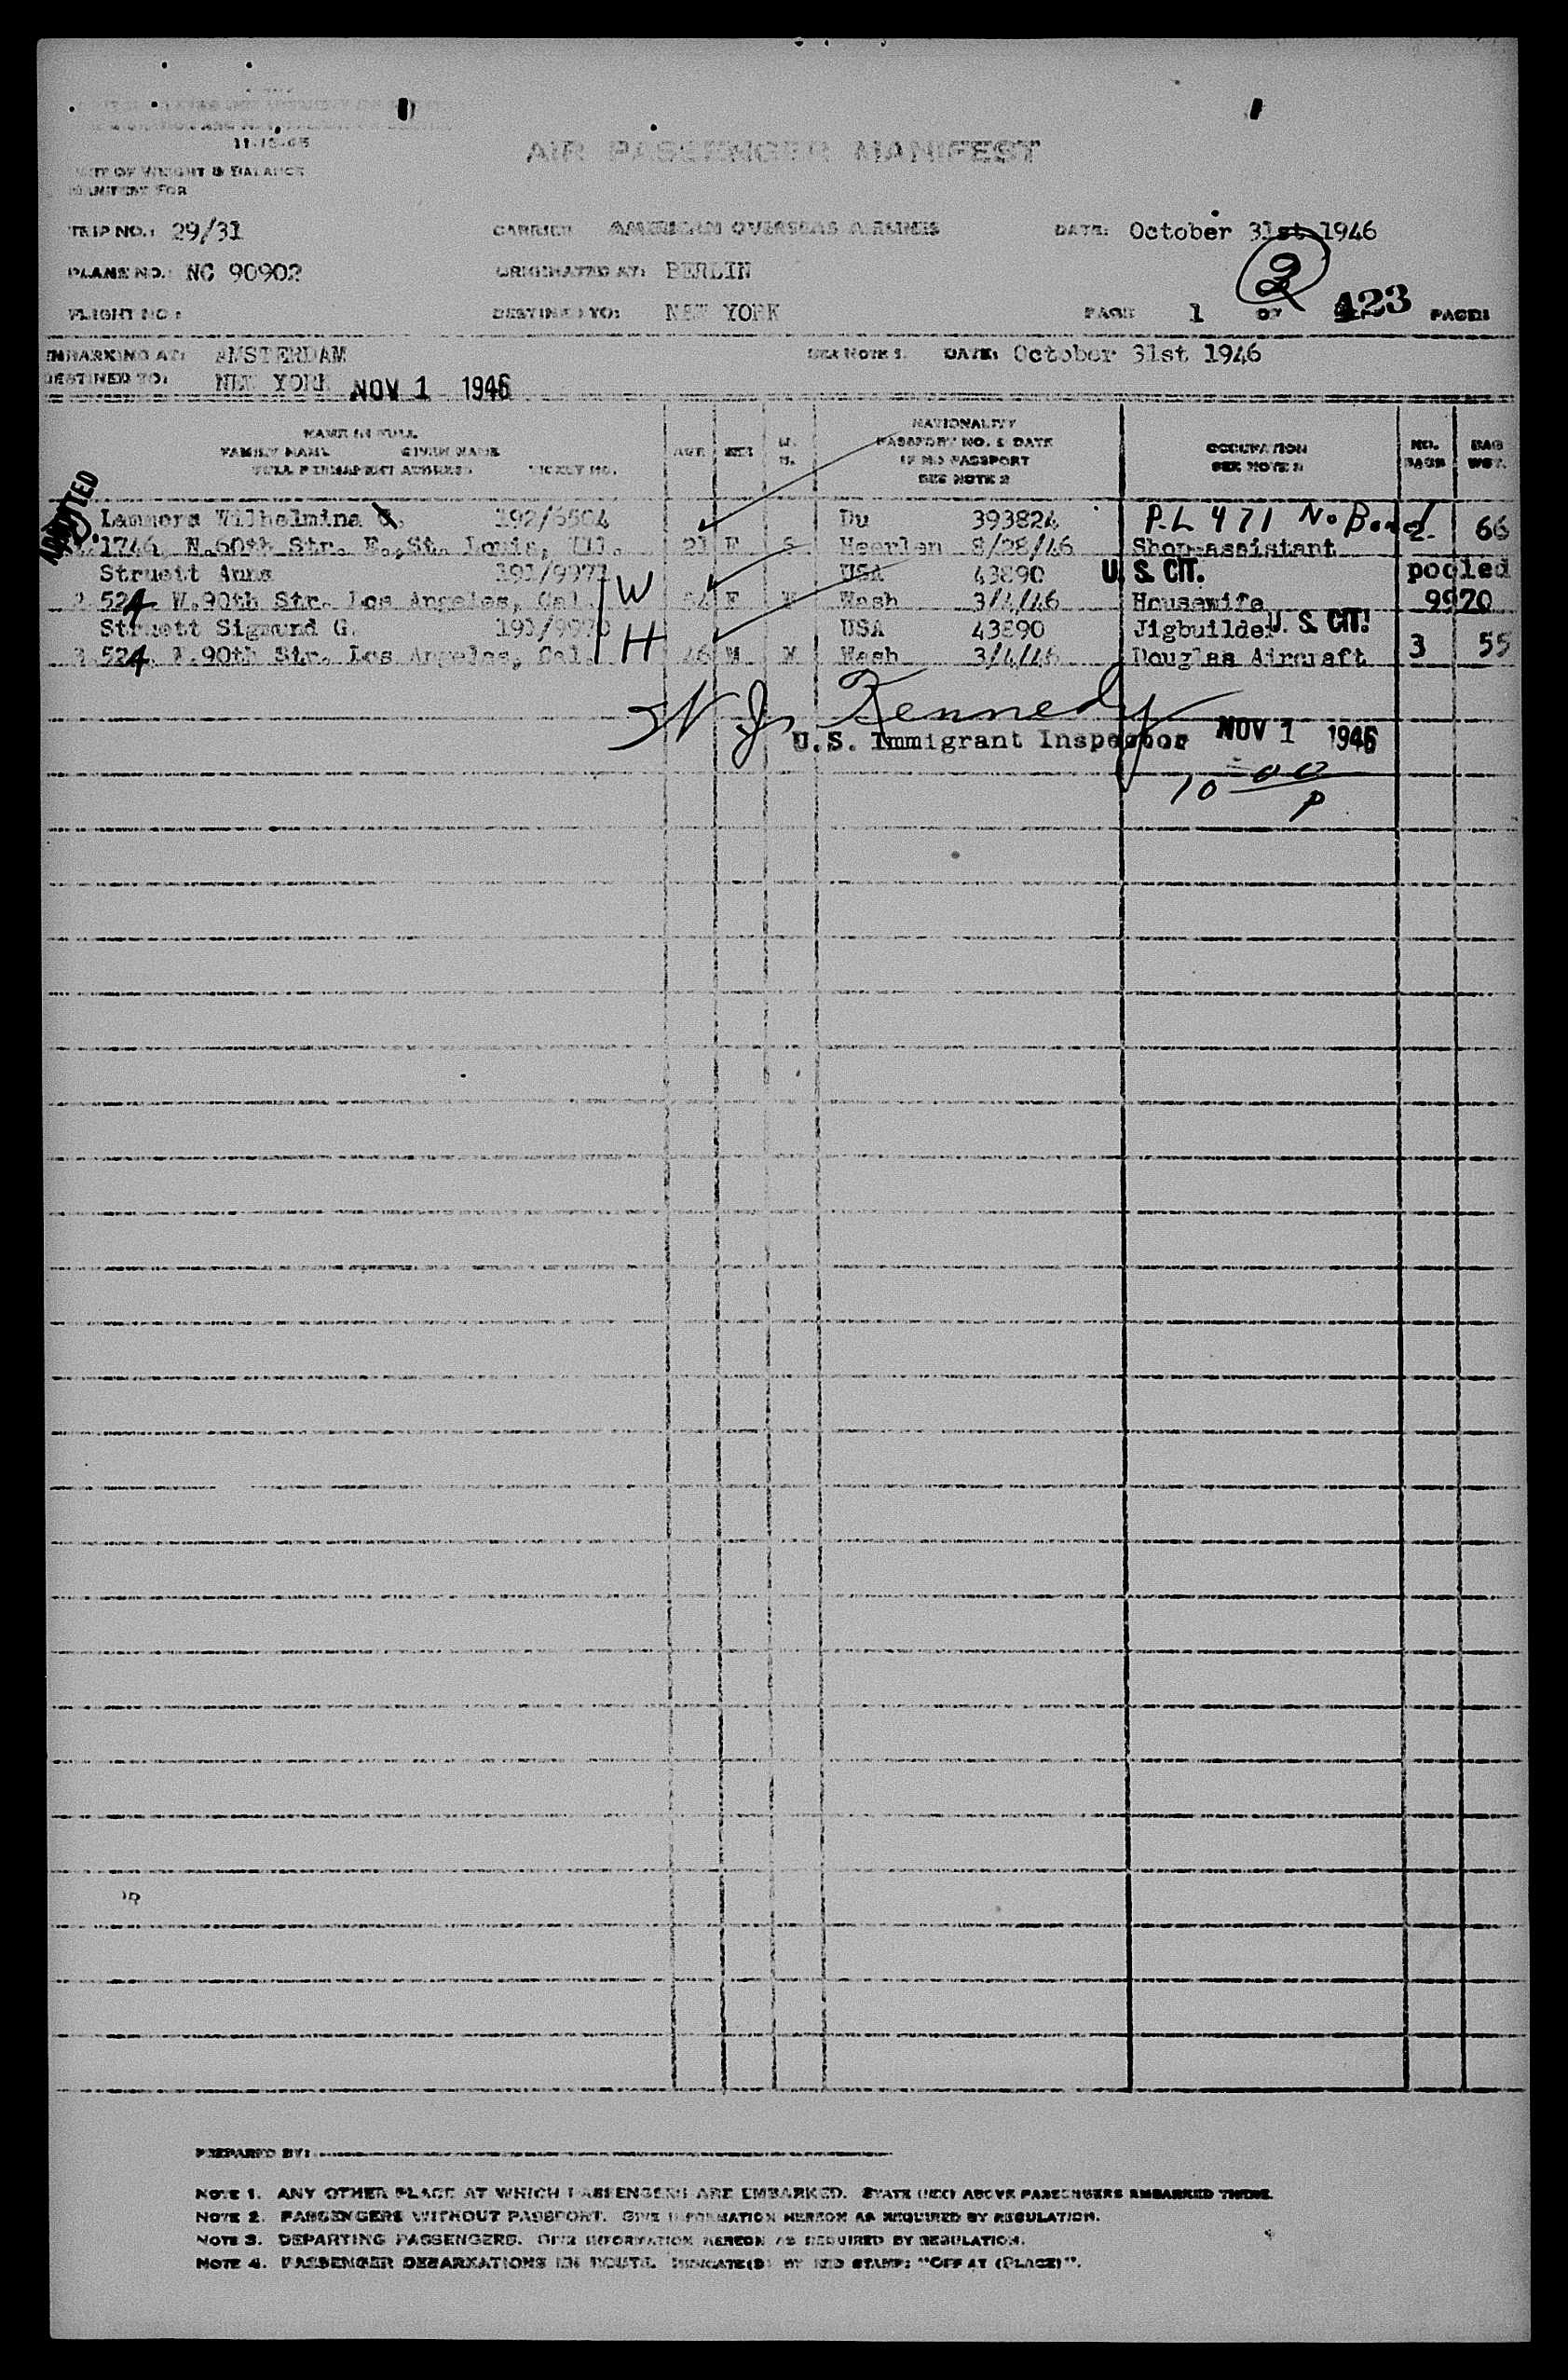 11-15-45
AIR PASSENGER MANIFEST
WEIGHT & BALANCE
MANIFEST FOR
TRIP NO.: 29/31 CARRIER AMERICAN OVERSEAS AIRLINES DATE: October 31st 1946
PLANE NO.: NC 90902 ORIGINATED AT: BERLIN
FLIGHT NO: DESTINED TO: NEW YORK PAGE 1 OF 423 PAGES
EMBARKING AT: AMSTERDAM SEE NOTE 1. DATE: October 31st 1946
DESTINED TO: NEW YORK NOV 1 1946
NAME IN FULL
FAMILY NAME GIVEN NAME
FULL PERMANENT ADDRESS TICKET NO.
AGE SEX M. S.
NATIONALITY
PASSPORT NO. & DATE
IF NO PASSPORT
SEE NOTE 2
OCCUPATION
SEE NOTE 3
NO. BAGS
BAG WGT.
ADMITTED
Lammers Wilhelmina G. 192/6504 Du 393824 P.L 471 No Bond
1. 1746 N.60th Str. E.,St. Louis, Ill. 21 F S Heerlen 8/28/46 Shop-assistant 2 66
Struett Anna 193/9971 W USA 43890 U.S. CIT. pooled
2. 524 W.90th Str. Los Angeles, Cal. F M Wash 3/4/46 Housewife 9970
Struett Sigmund G. 193/9970 USA 43890 Jigbuilder U. S. CIT.
3. 524 W.90th Str. Los Angeles, Cal. H 46 M M Wash 3/4/46 Douglas Aircraft 3 55
Kennedy
U.S. Immigrant Inspector NOV 1 1946
10 00 P
PREPARED BY:
NOTE 1. ANY OTHER PLACE AT WHICH PASSENGERS ARE EMBARKED. STATE NEXT ABOVE PASSENGERS EMBARKED THERE.
NOTE 2. PASSENGERS WITHOUT PASSPORT. GIVE INFORMATION HEREON AS REQUIRED BY REGULATION.
NOTE 3. DEPARTING PASSENGERS. GIVE INFORMATION HEREON AS REQUIRED BY REGULATION.
NOTE 4. PASSENGER DEBARKATIONS EN ROUTE. INDICATE(D) BY RED STAMP: "OFF AT (PLACE)".